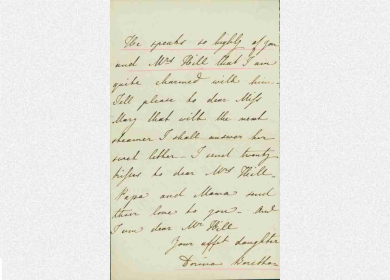 He speaks so highly of you
and Mrs Hill that I am
quite charmed with him.
Tell please to dear Miss
Mary that with the next
steamer I shall answer her
sweet letter. I send twenty
kisses to dear Mrs Hill.
Papa and Mama send
their love to you. And
I am dear Mr Hill
Your affct daughter
Dorina